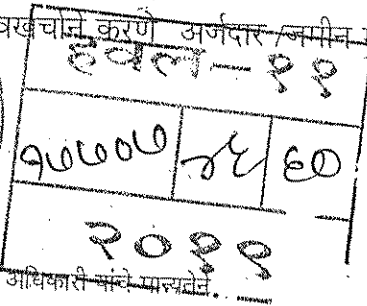 वखर्चाने करणे अर्जदार / जमीन
हवल - ११
१७७०७ २६ ६०
२०११
अधिकारी यांचे मान्यतेने.